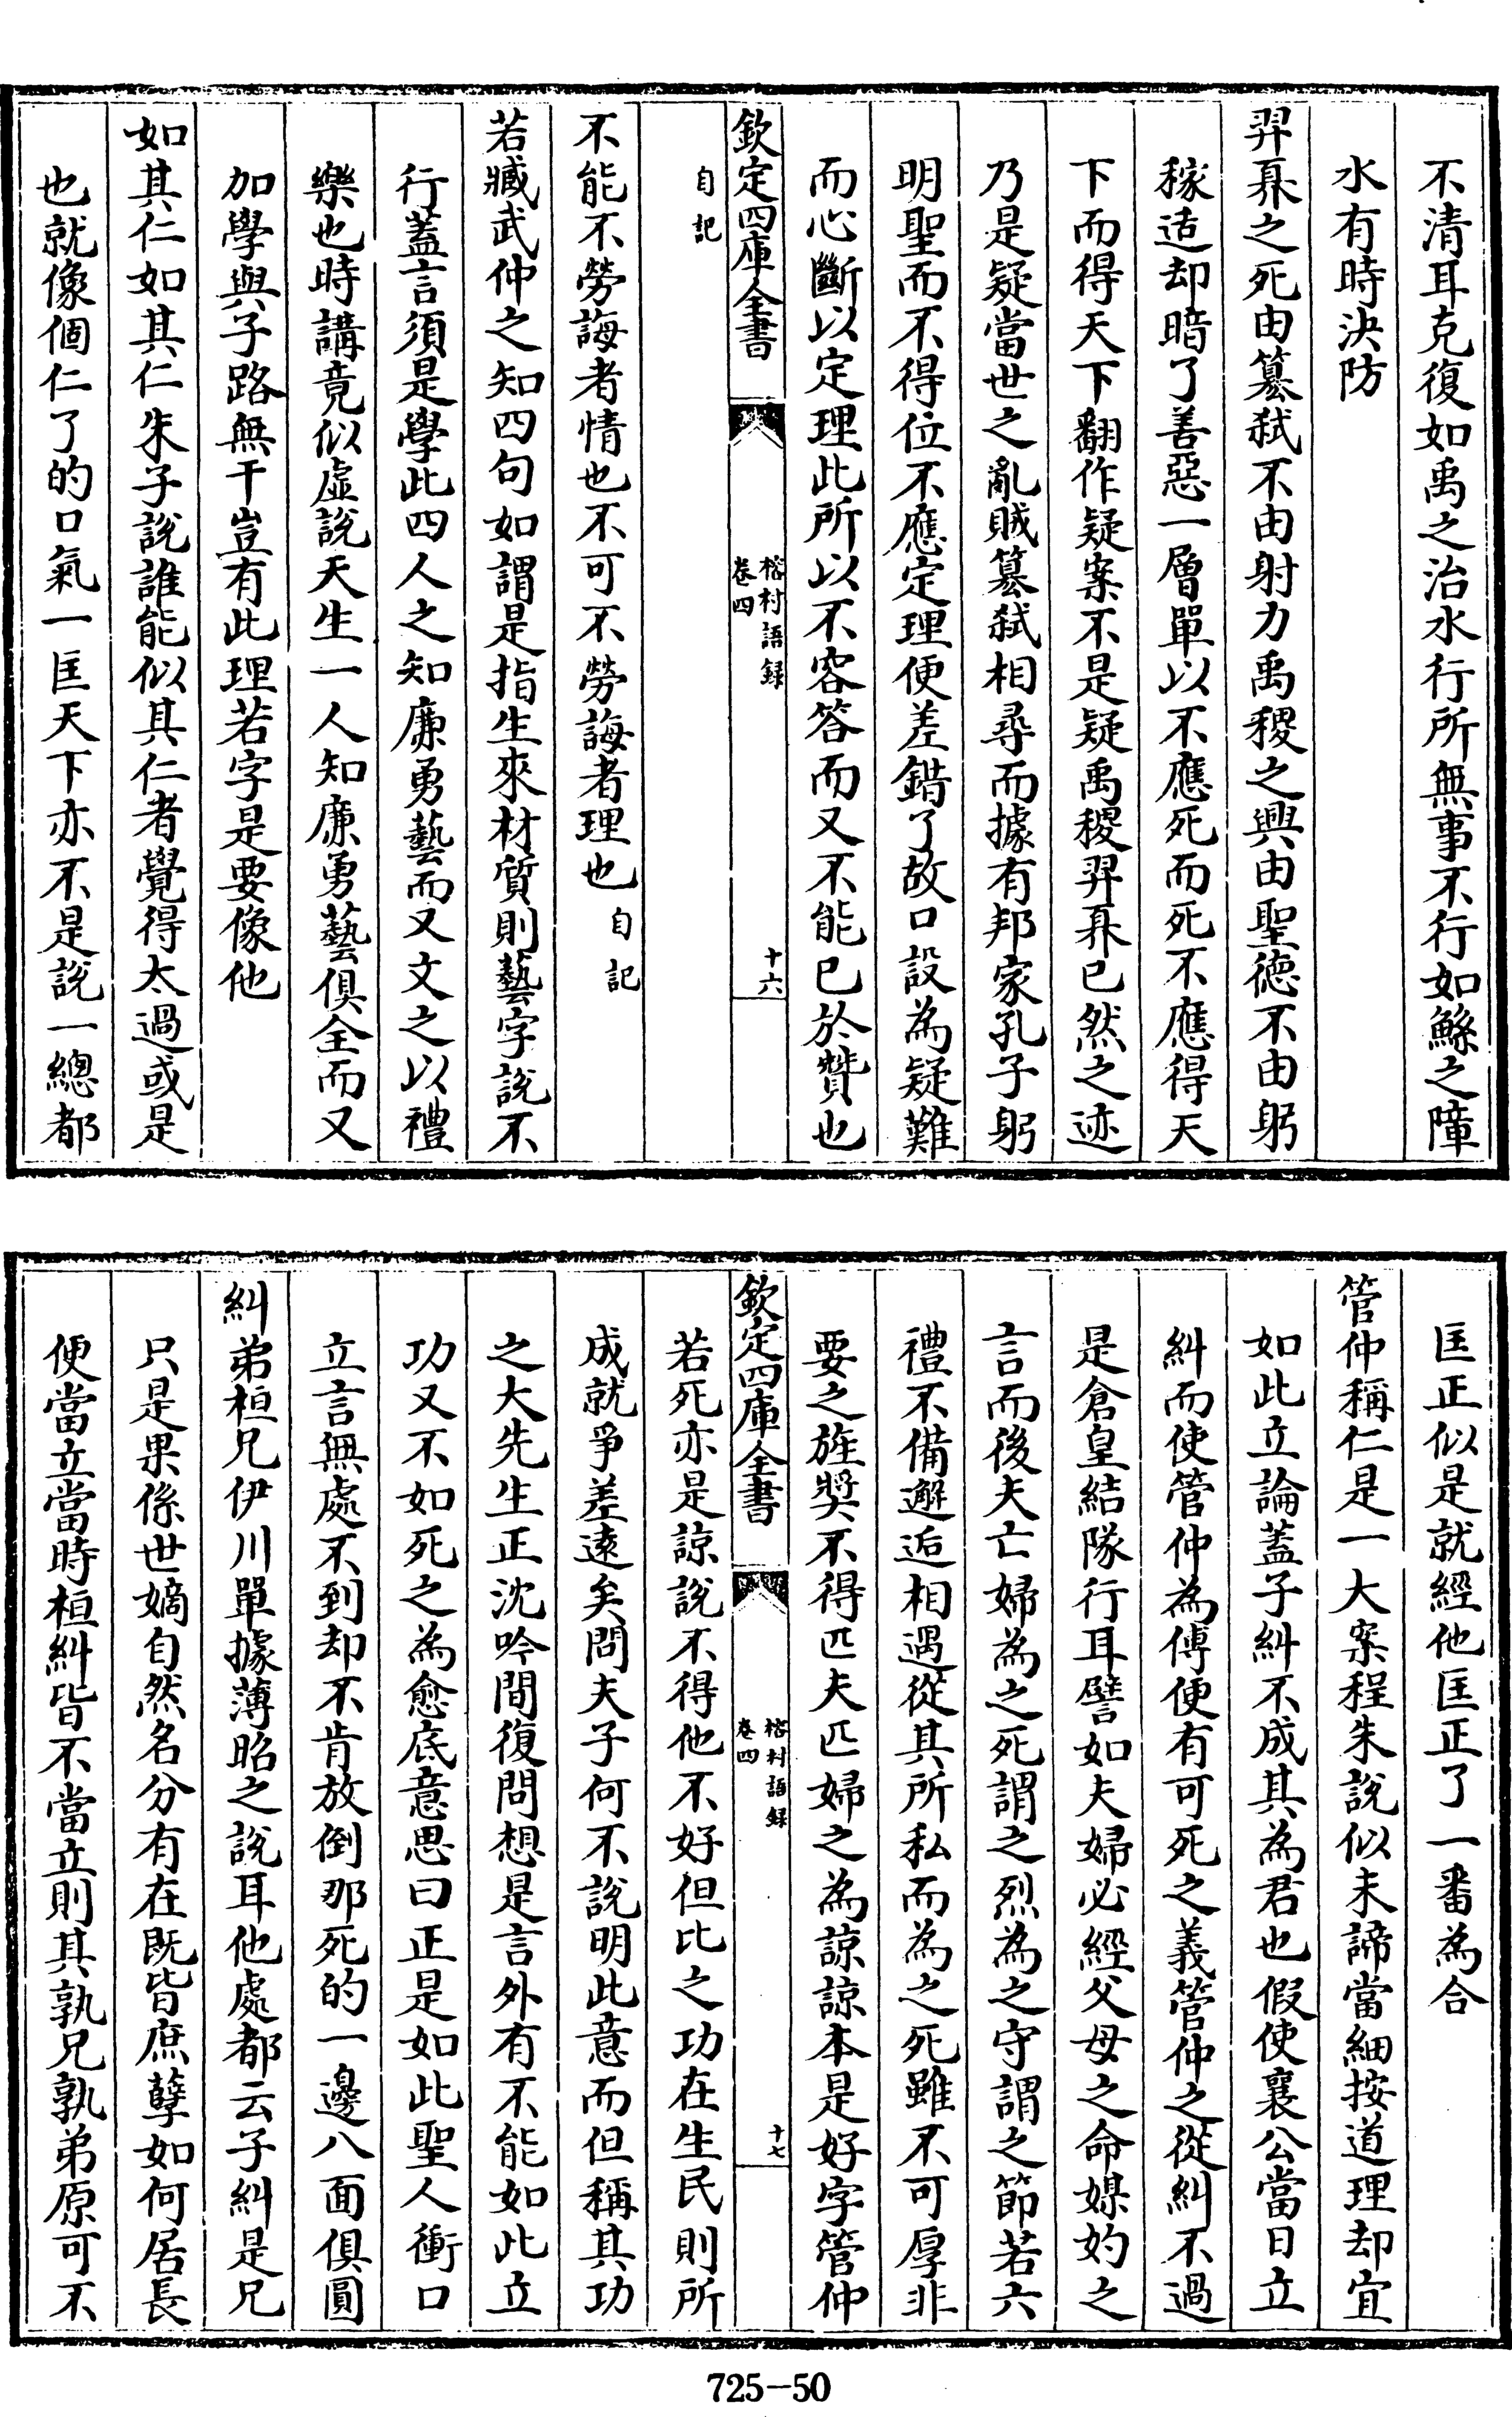 不清耳克復如禹之治水行所無事不行如鯀之障
水有時決防
羿奡之死由簒弑不由射力禹稷之興由聖德不由躬
稼适却暗了善惡一層單以不應死而死不應得天
下而得天下翻作疑案不是疑禹稷羿奡已然之迹
乃是疑當世之亂賊簒弑相尋而據有邦家孔子躬
明聖而不得位不應定理便差錯了故口設為疑難
而心斷以定理此所以不容答而又不能已於贊也
欽定四庫全書
榕村語録
卷四
十六
自記
不能不勞誨者情也不可不勞誨者理也自記
若臧武仲之知四句如謂是指生來材質則藝字說不
行蓋言須是學此四人之知廉勇藝而又文之以禮
樂也時講竟似虛說天生一人知廉勇藝俱全而又
加學與子路無干豈有此理若字是要像他
如其仁如其仁朱子說誰能似其仁者覺得太過或是
也就像個仁了的口氣一匡天下亦不是說一總都
匡正似是就經他匡正了一番為合
管仲稱仁是一大案程朱說似未諦當細按道理却宜
如此立論蓋子糾不成其為君也假使襄公當日立
糾而使管仲為傅便有可死之義管仲之從糾不過
是倉皇結隊行耳譬如夫婦必經父母之命媒妁之
言而後夫亡婦為之死謂之烈為之守謂之節若六
禮不備邂逅相遇從其所私而為之死雖不可厚非
要之旌奬不得匹夫匹婦之為諒諒本是好字管仲
欽定四庫全書
榕村語録
卷四
十七
若死亦是諒說不得他不好但比之功在生民則所
成就爭差遠矣問夫子何不說明此意而但稱其功
之大先生正沈吟間復問想是言外有不能如此立
功又不如死之為愈底意思曰正是如此聖人衝口
立言無處不到却不肯放倒那死的一邊八面俱圓
糾弟桓兄伊川單據薄昭之說耳他處都云子糾是兄
只是果係世嫡自然名分有在既皆庶孽如何居長
便當立當時桓糾皆不當立則其孰兄孰弟原可不
725-50